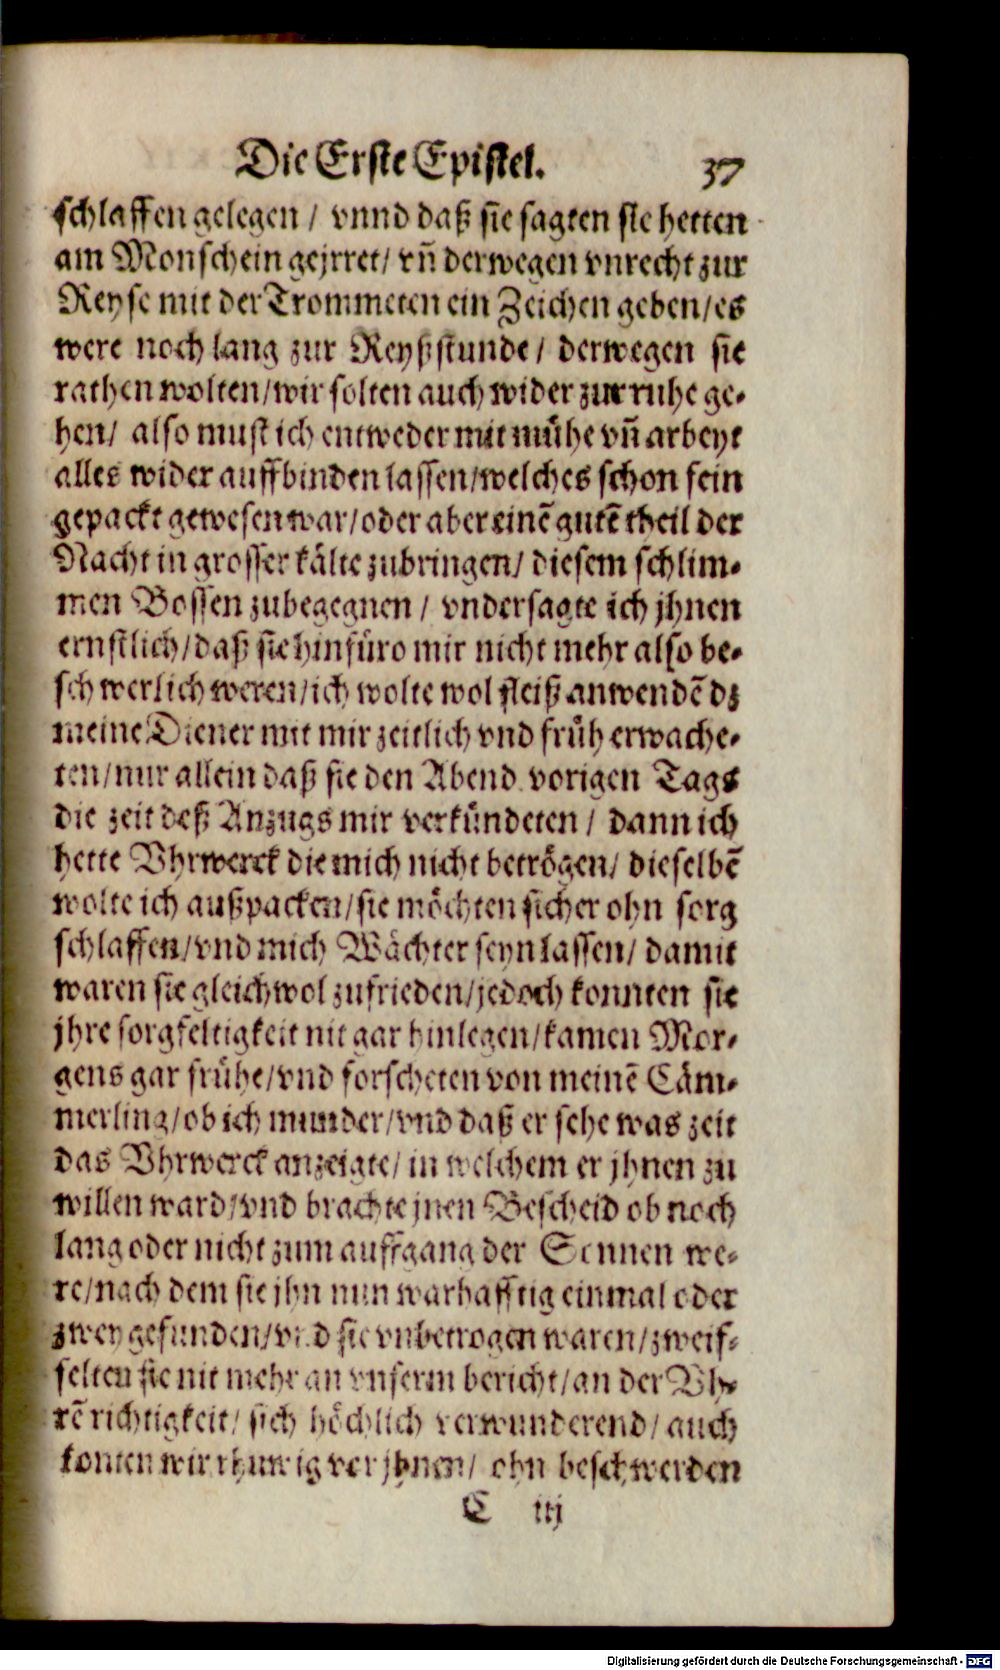 Die Erste Epistel. 37
schlaffen gelegen / vnnd daß sie sagten sie hetten
am Monschein gejrret / vñ derwegen vnrecht zur
Reyse mit der Trommeten ein Zeichen geben / es
were noch lang zur Reyßstunde / derwegen sie
rathen wolten / wir solten auch wider zur ruhe ge-
hen / also must ich entweder mit mühe vñ arbeyt
alles wider auffbinden lassen / welches schon fein
gepackt gewesen war / oder aber einē gutē theil der
Nacht in grosser kälte zubringen / diesem schlim-
men Bossen zubegegnen / vndersagte ich jhnen
ernstlich / daß sie hinfüro mir nicht mehr also be-
schwerlich weren / ich wolte wol fleiß anwendē dz
meine Diener mit mir zeitlich vnd früh erwache-
ten / nur allein daß sie den Abend vorigen Tags
die zeit deß Anzugs mir verkündeten / dann ich
hette Vhrwerck die mich nicht betrögen / dieselbē
wolte ich außpacken / sie möchten sicher ohn sorg
schlaffen / vnd mich Wächter seyn lassen / damit
waren sie gleichwol zufrieden / jedoch konnten sie
jhre sorgfeltigkeit nit gar hinlegen / kamen Mor-
gens gar frühe / vnd forscheten von meinē Cäm-
merling / ob ich munder / vnd daß er sehe was zeit
das Vhrwerck anzeigte / in welchem er jhnen zu
willen ward / vnd brachte jnen Bescheid ob noch
lang oder nicht zum auffgang der Sonnen we-
re / nach dem sie jhn nun warhafftig einmal oder
zwey gefunden / vnd sie vnbetrogen waren / zweif-
felten sie nit mehr an vnserm bericht / an der Vh-
rē richtigkeit / sich höchlich verwunderend / auch
konten wir rhuwig vor jhnen / ohn beschwerden
C iij
Digitalisierung gefördert durch die Deutsche Forschungsgemeinschaft - DFG